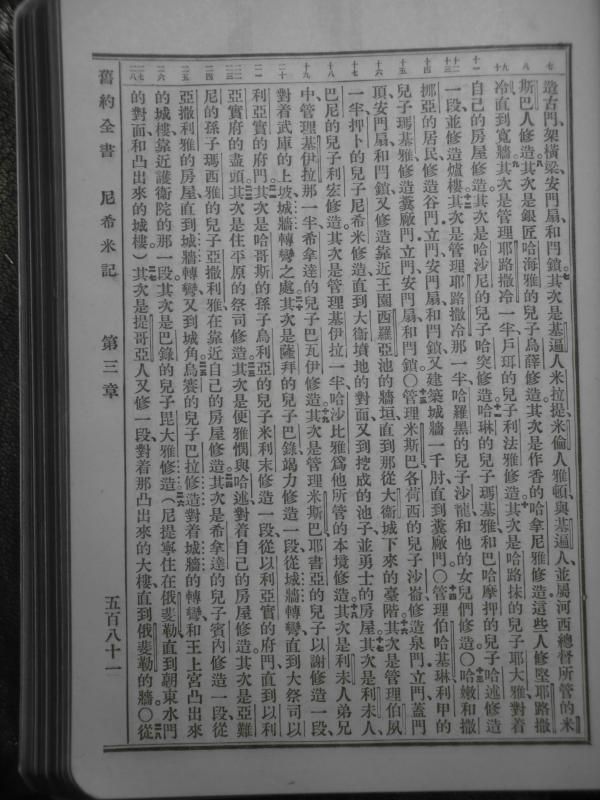 造古門架橫梁安門扇和門鎖其次是基遍人米拉提米倫人雅頓與基遍人並屬河西總督所管的米
斯巴人修造其次是銀匠哈海雅的兒子烏薛修造其次是作香的哈拿尼雅修造這些人修堅耶路撒
冷直到寬牆其次是管理耶路撒冷一半戶珥的兒子利法雅修造其次是哈路抹的兒子耶大雅對着
自己的房屋修造其次是哈沙尼的兒子哈突修造哈琳的兒子瑪基雅和巴哈摩押的兒子哈述修造
一段並修造爐樓其次是管理耶路撒冷那一半哈羅黑的兒子沙龍和他的女兒們修造〇哈嫩和撒
挪亞的居民修造谷門立門安門扇和門鎖又建築城牆一千肘直到糞廠門〇管理伯哈基琳利甲的
兒子瑪基雅修造糞廠門立門安門扇和門鎖〇管理米斯巴各荷西的兒子沙崙修造泉門立門蓋門
頂安門扇和門鎖又修造靠近王園西羅亞池的牆垣直到那從大衞城下來的臺階其次是管理伯夙
一半押卜的兒子尼希米修造直到大衞墳地的對面又到挖成的池子並勇士的房屋其次是利未人
巴尼的兒子利宏修造其次是管理基伊拉一半哈沙比雅爲他所管的本境修造其次是利未人弟兄
中管理基伊拉那一半希拿達的兒子巴瓦伊修造其次是管理米斯巴耶書亞的兒子以謝修造一段
對着武庫的上坡城牆轉彎之處其次是薩拜的兒子巴錄竭力修造一段從城牆轉彎直到大祭司以
利亞實的府門其次是哈哥斯的孫子烏利亞的兒子米利末修造一段從以利亞實的府門直到以利
亞實府的盡頭其次是住平原的祭司修造其次是便雅憫與哈述對着自己的房屋修造其次是亞難
尼的孫子瑪西雅的兒子亞撒利雅在靠近自己的房屋修造其次是希拿達的兒子賓內修造一段從
亞撒利雅的房屋直到城牆轉彎又到城角烏賽的兒子巴拉修造對着城牆的轉彎和王上宮凸出來
的城樓靠近護衞院的那一段其次是巴錄的兒子毘大雅修造（尼提寧住在俄斐勒直到朝東水門
的對面和凸出來的城樓）其次是提哥亞人又修一段對着那凸出來的大樓直到俄斐勒的牆〇從
舊約全書 尼希米記 第三章 五百八十一